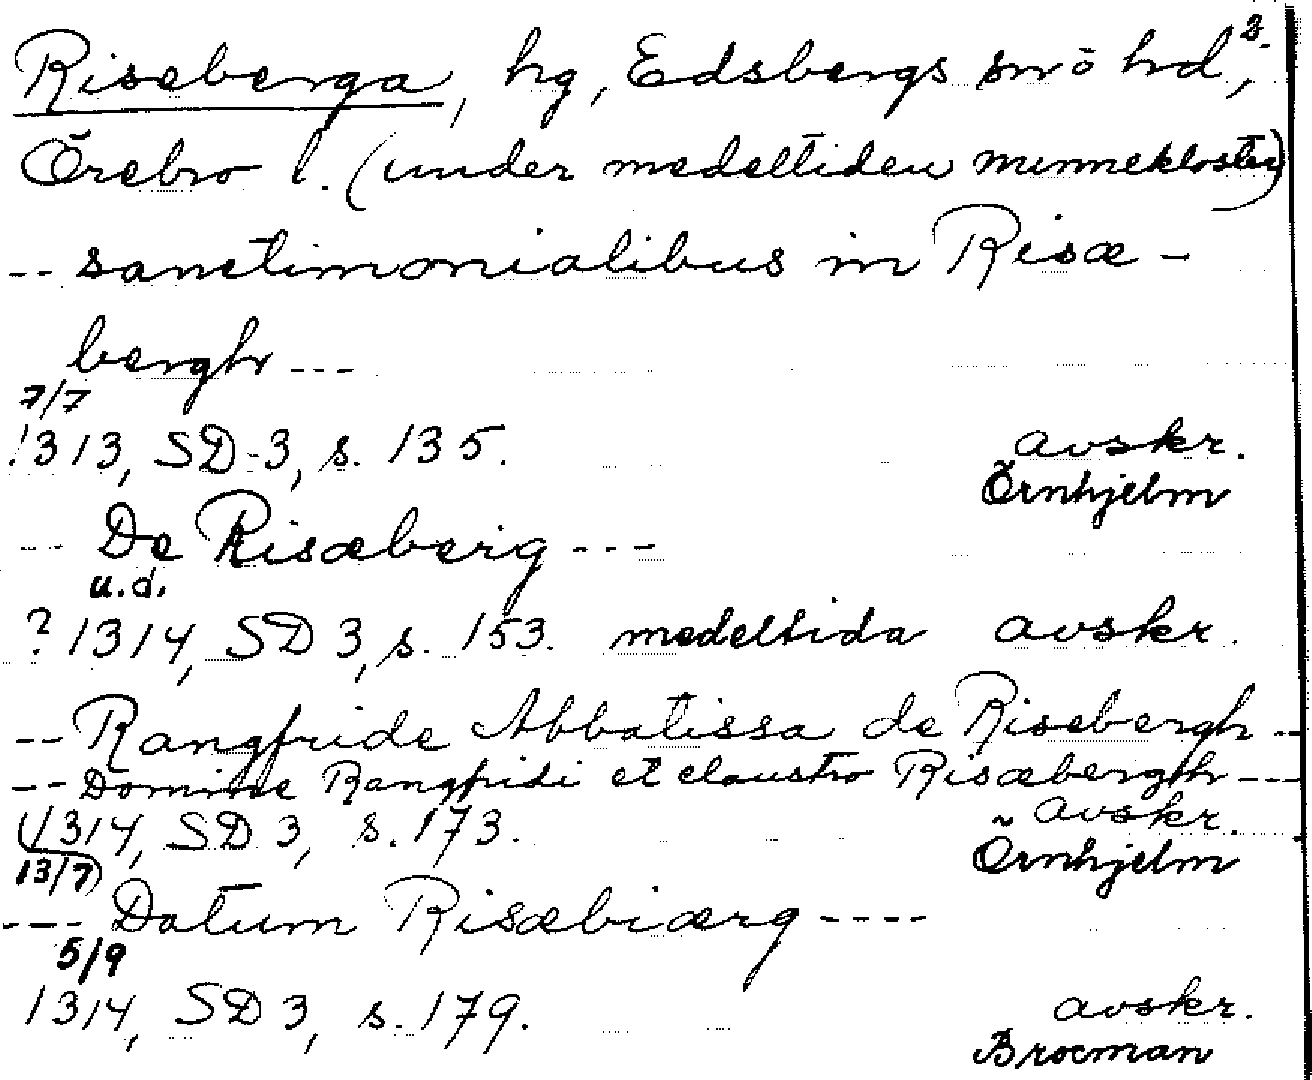 Riseberga, hg, Edsbergs sn o hd, 3.
Örebro l. (under medeltiden nunnekloster)
-- sanctimonialibus in Risæ-
bergh ---
7/7
1313, SD 3, s. 135. avskr.
Örnhjelm
-- De Risæberg ---
u.d.
? 1314, SD 3, s. 153. medeltida avskr.
-- Rangfride Abbatissa de Risebergh --
-- Domine Rangfridi et claustro Risæbergh ---
1314, SD 3, s. 173. avskr.
13/7 Örnhjelm
--- Datum Risæbiærg ----
5/9
1314, SD 3, s. 179. avskr.
Brocman